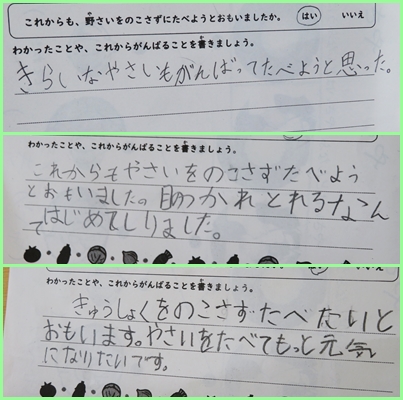 これからも、野さいをのこさずにたべようとおもいましたか。 はい いいえ
わかったことや、これからがんばることを書きましょう。
きらいなやさいもがんばってたべようと思った。
わかったことや、これからがんばることを書きましょう。
これからもやさいをのこさずたべよう
とおもいました。 かれとれるなん
てはじめてしりました。
はい いいえ
わかったことや、これからがんばることを書きましょう。
きゅうしょくをのこさずたべたいと
おもいます。やさいをたべてもっと元気
になりたいです。